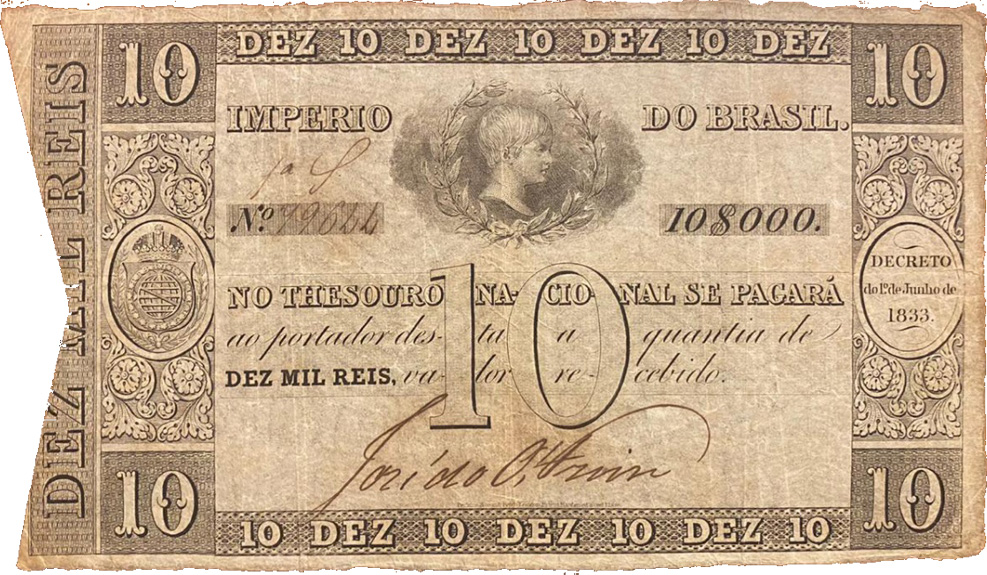 DEZ 10 DEZ 10 DEZ 10 DEZ
10
10
DEZ MIL REIS
IMPERIO DO BRASIL.
1a S
No 10$000.
DECRETO
do 1o de Junho de
1833.
10
NO THESOURO NACIONAL SE PAGARÁ
ao portador desta a quantia de
DEZ MIL REIS, valor recebido.
10
10
10 DEZ 10 DEZ 10 DEZ 10